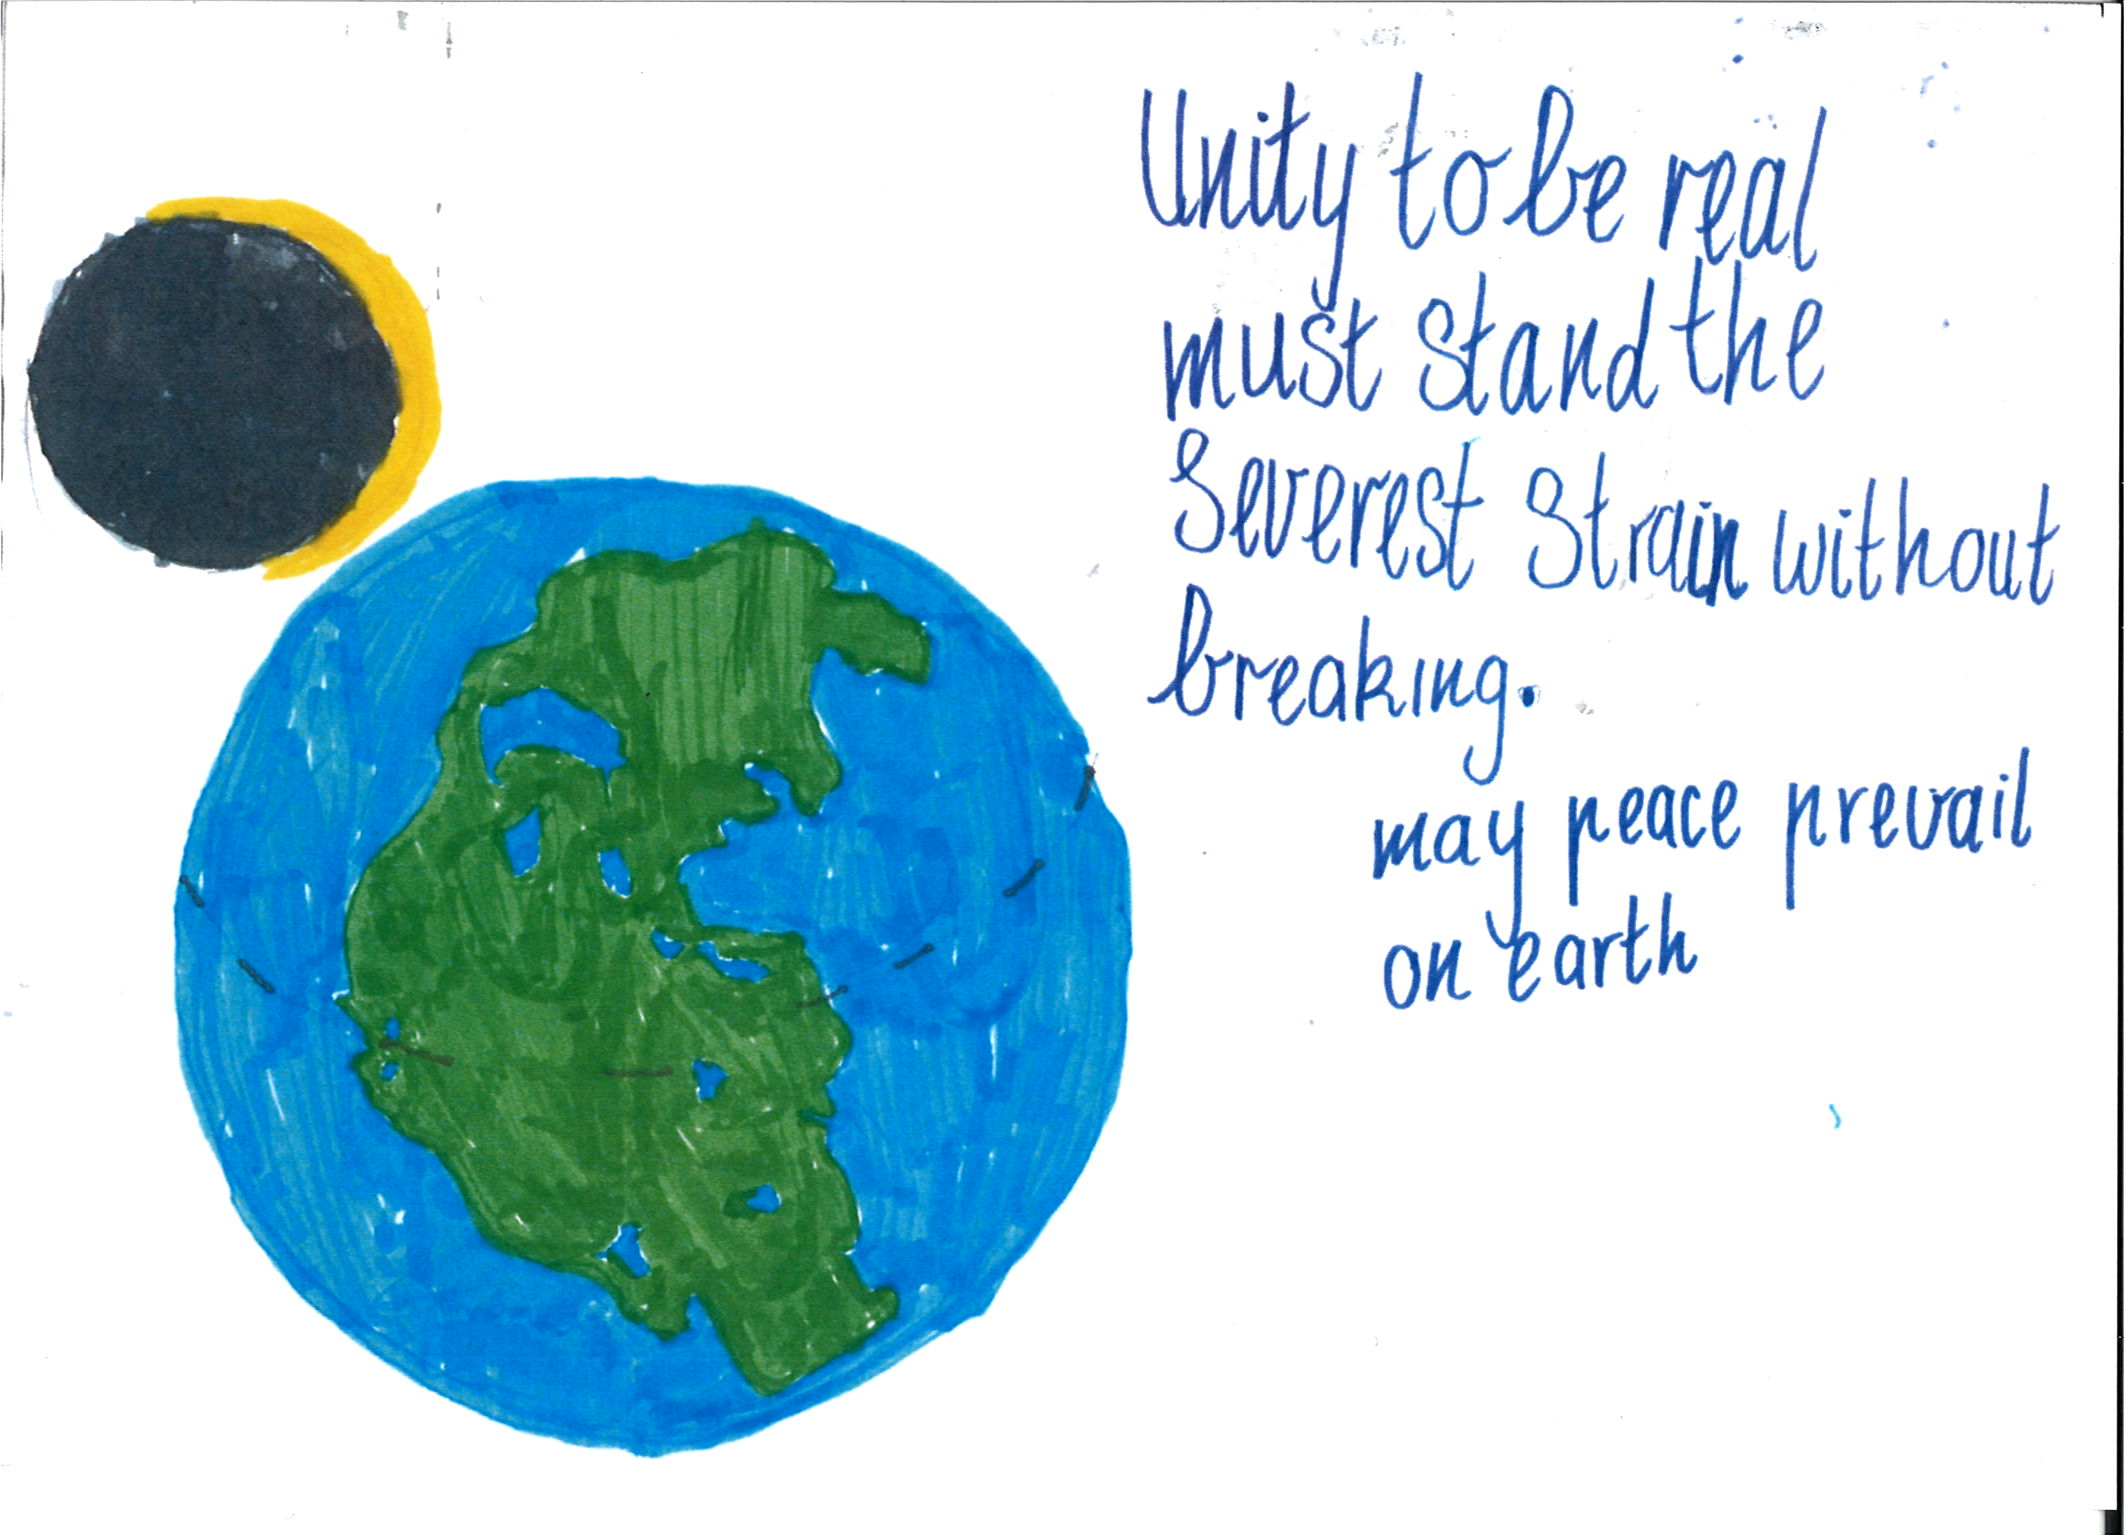 Unity to be real
must stand the
Severest Strain without
breaking.
may peace prevail
on earth